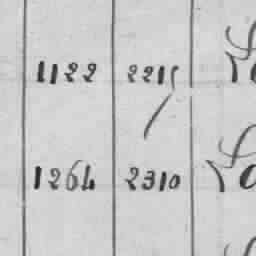 1122 2215
1264 2310